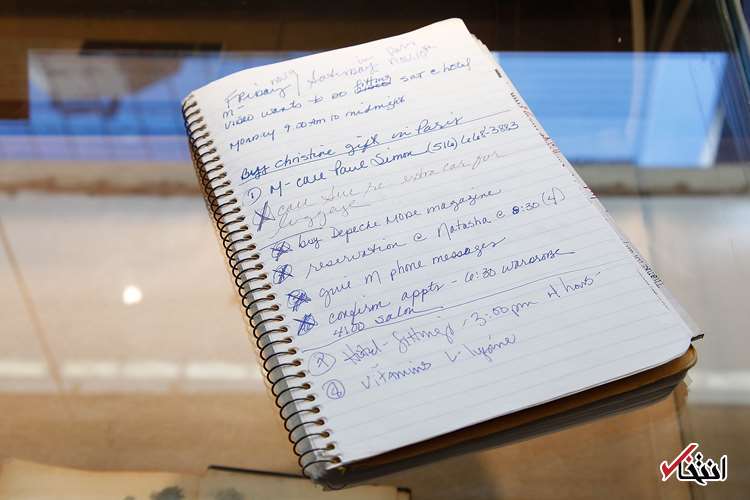 Nov 9 in Paris
FRIDAY / Saturday
M-
VIDEO wants to DO Fitting SAT @ hotel
MONDAY 9:00 AM to midnight
Buy Christine gift in Paris
1) M- call Paul Simon (516)
call Sue re extra car for
luggage
buy Depeche Mode magazine
reservation @ Natasha @ 8:30 (4)
give M phone messages
confirm appts - 6:30 wardrobe
4:00 salon
7) Hotel - fittings - 3:00pm
8) Vitamins L-lysine
انتخاب